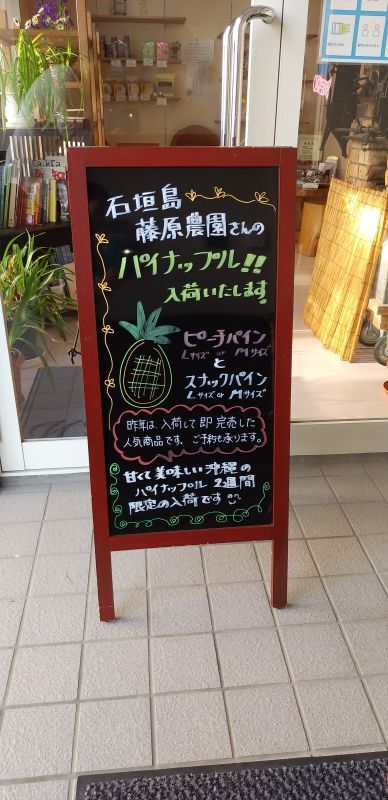 石垣島
藤原農園さんの
パイナップル!!
入荷いたします!
ピーチパイン
Lサイズ or Mサイズ
と
スナックパイン
Lサイズ or Mサイズ
昨年は、入荷して即完売した
人気商品です。ご予約も承ります。
甘くて美味しい沖縄の
パイナップル 2週間
限定の入荷です